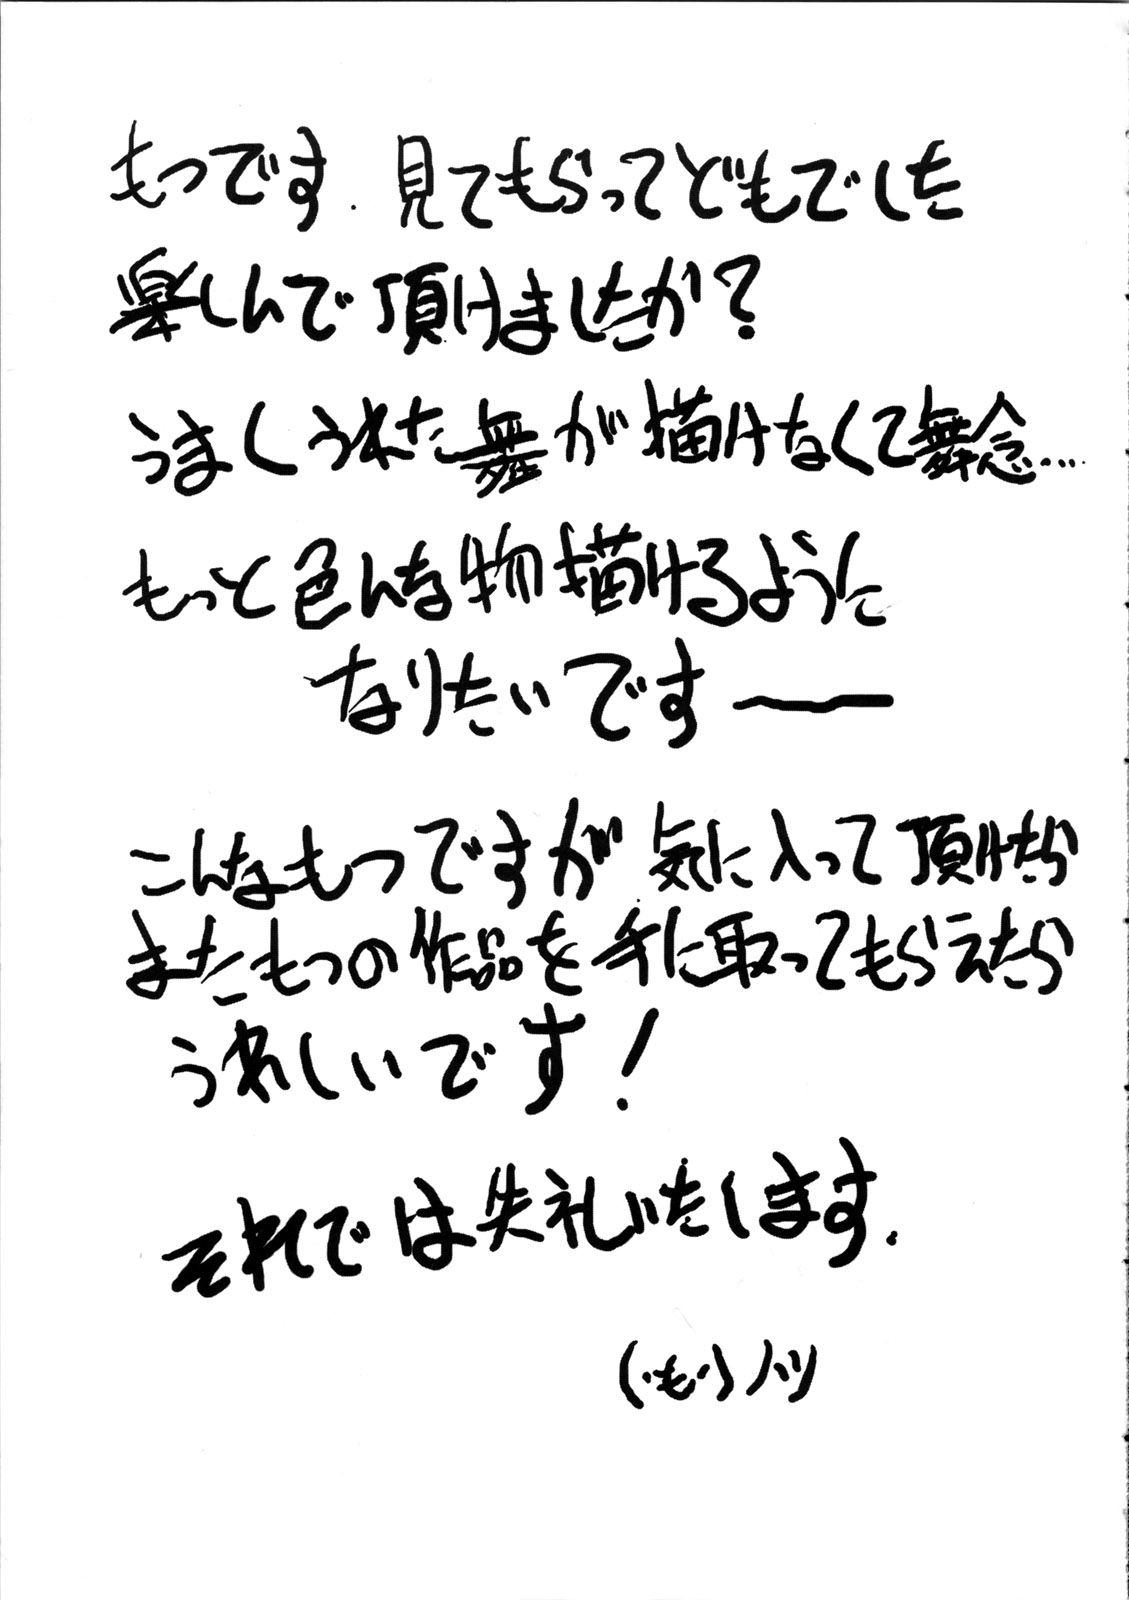 もつです. 見てもらってどもでした
楽しんで頂けましたか?
うまくうれた舞が描けなくて無念....
もっと色んな物描けるように
なりたいです〜
こんなもつですが気に入って頂けたら
またもつの作品を手に取ってもらえたら
うれしいです!
それでは失礼いたします.
(・も・)ノシ